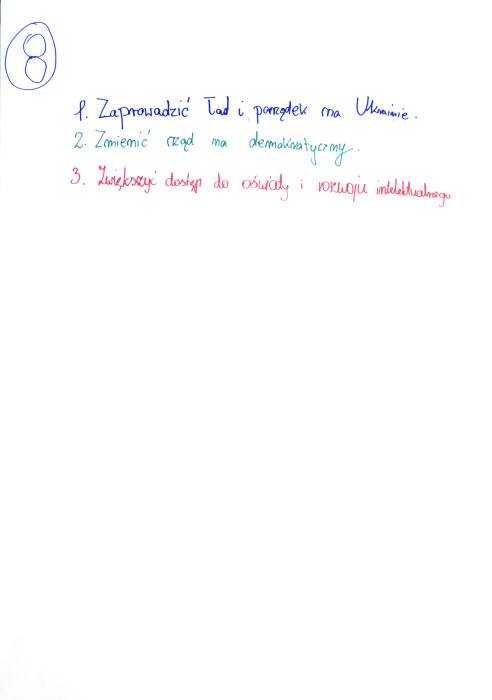 8
1. Zaprowadzić ład i porządek na Ukrainie.
2. Zmienić rząd na demokratyczny.
3. Zwiększyć dostęp do oświaty i rozwoju intelektualnego